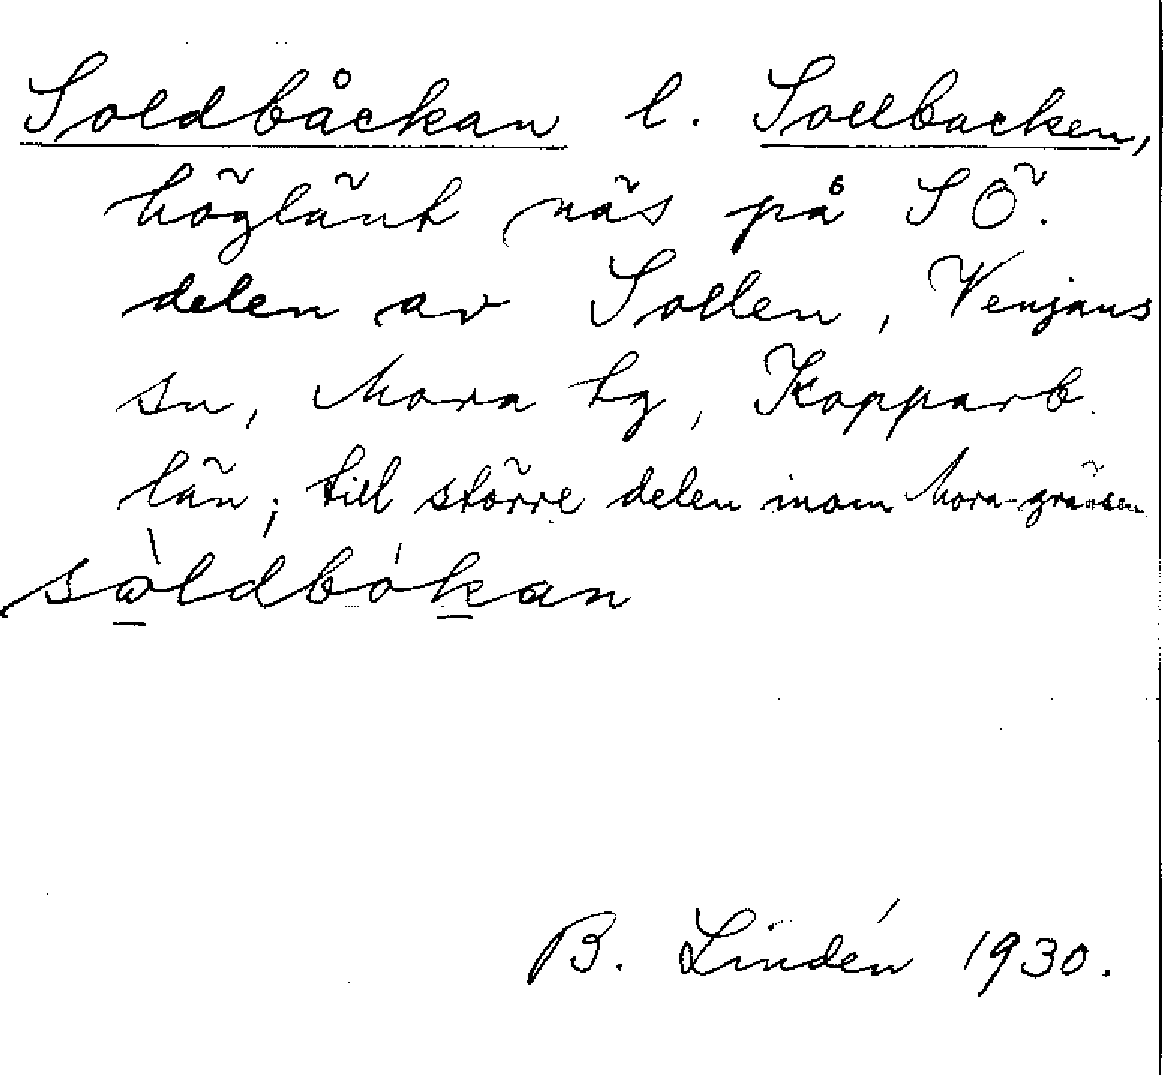 Soldbåckan l. Sollbacken,
höglänt näs på SÖ.
delen av Sollen, Venjans
sn, Mora tg, Kopparb.
län; till större delen inom Mora-gränsen
sòldbókan
B. Lindén 1930.